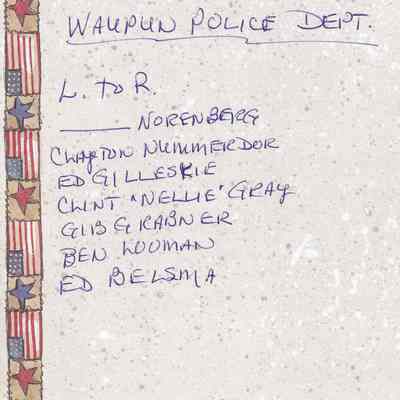 WAUPUN POLICE DEPT.
L. TO R.
______ NORENBERG
CLAYTON NUMMERDOR
ED GILLESKIE
CLINT "NELLIE" GRAY
GIB GRABNER
BEN LOOMAN
ED BELSMA